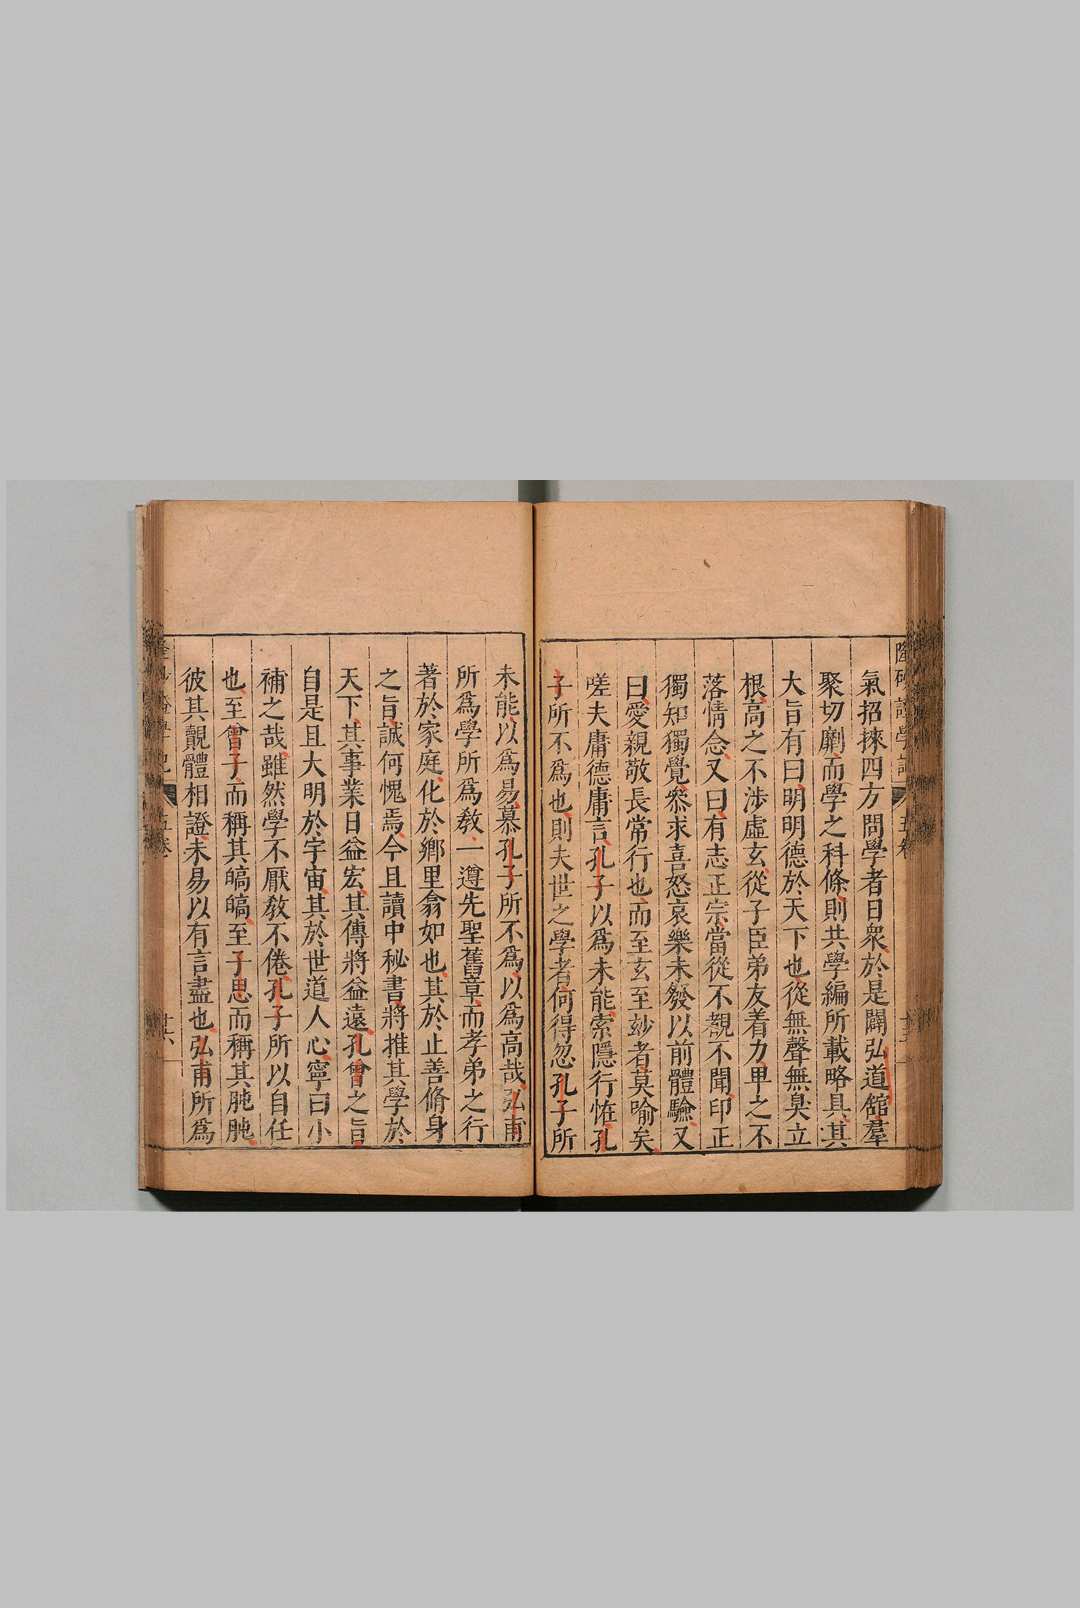 證學記 五卷
氣招揀四方問學者日衆於是闢弘道舘羣
聚切劘而學之科條則共學編所載略具其
大旨有曰明明德於天下也從無聲無臭立
根高之不涉虛玄從子臣弟友着力卑之不
落情念又曰有志正宗當從不覩不聞印正
獨知獨覺叅求喜怒哀樂未發以前體驗又
曰愛親敬長常行也而至玄至玅者莫喻矣
嗟夫庸德庸言孔子以爲未能索隱行恠孔
子所不爲也則夫世之學者何得忽孔子所
未能以爲易慕孔子所不爲以爲高哉弘甫
所爲學所爲敎一遵先聖舊章而孝弟之行
著於家庭化於鄉里翕如也其於止善脩身
之旨誠何愧焉今且讀中秘書將推其學於
天下其事業日益宏其傳將益遠孔曾之旨
自是且大明於宇宙其於世道人心寧曰小
補之哉雖然學不厭敎不倦孔子所以自任
也至曾子而稱其皜皜至子思而稱其肫肫
彼其覿體相證未易以有言盡也弘甫所爲